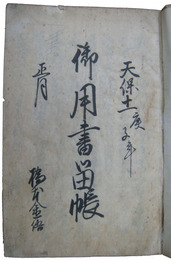 天保十一庚
子年
御用書留帳
正月